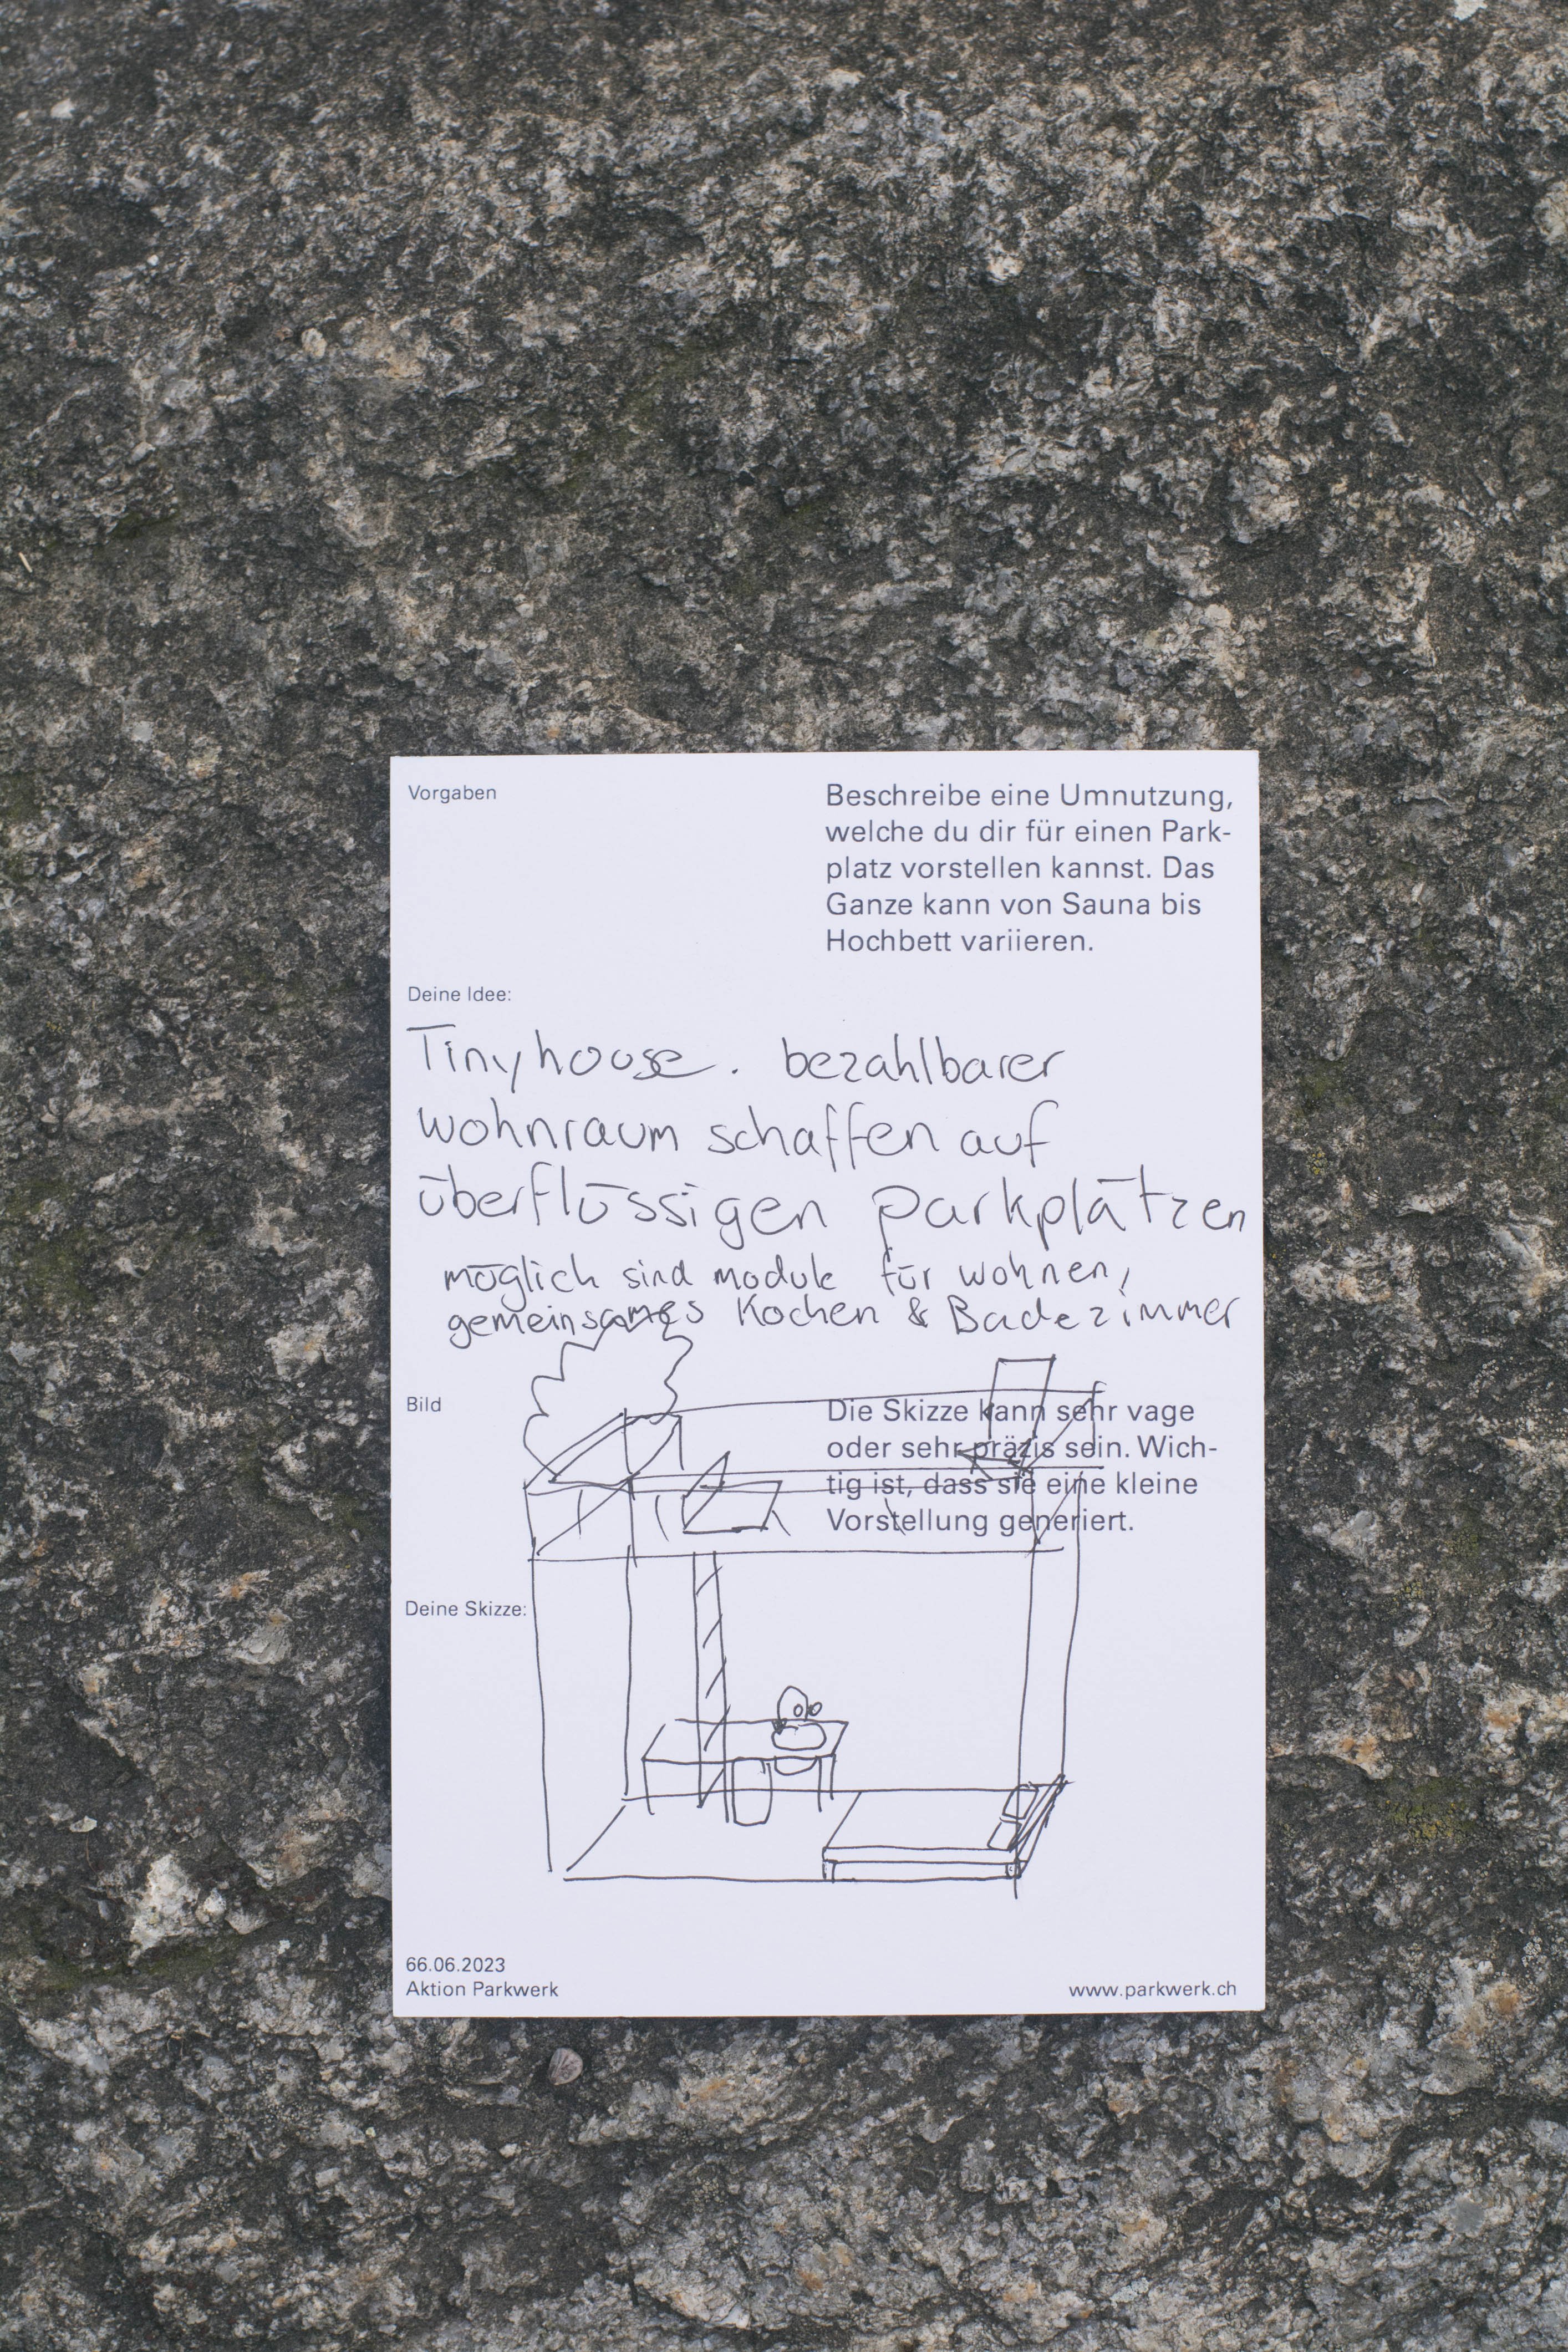 Vorgaben
Beschreibe eine Umnutzung,
welche du dir für einen Park-
platz vorstellen kannst. Das
Ganze kann von Sauna bis
Hochbett variieren.
Deine Idee:
Tinyhouse. bezahlbarer
wohnraum schaffen auf
überflüssigen parkplätzen
möglich sind module für wohnen,
gemeinsames Kochen & Badezimmer
Bild
Die Skizze kann sehr vage
oder sehr präzis sein. Wich-
tig ist, dass sie eine kleine
Vorstellung generiert.
Deine Skizze:
66.06.2023
Aktion Parkwerk
www.parkwerk.ch